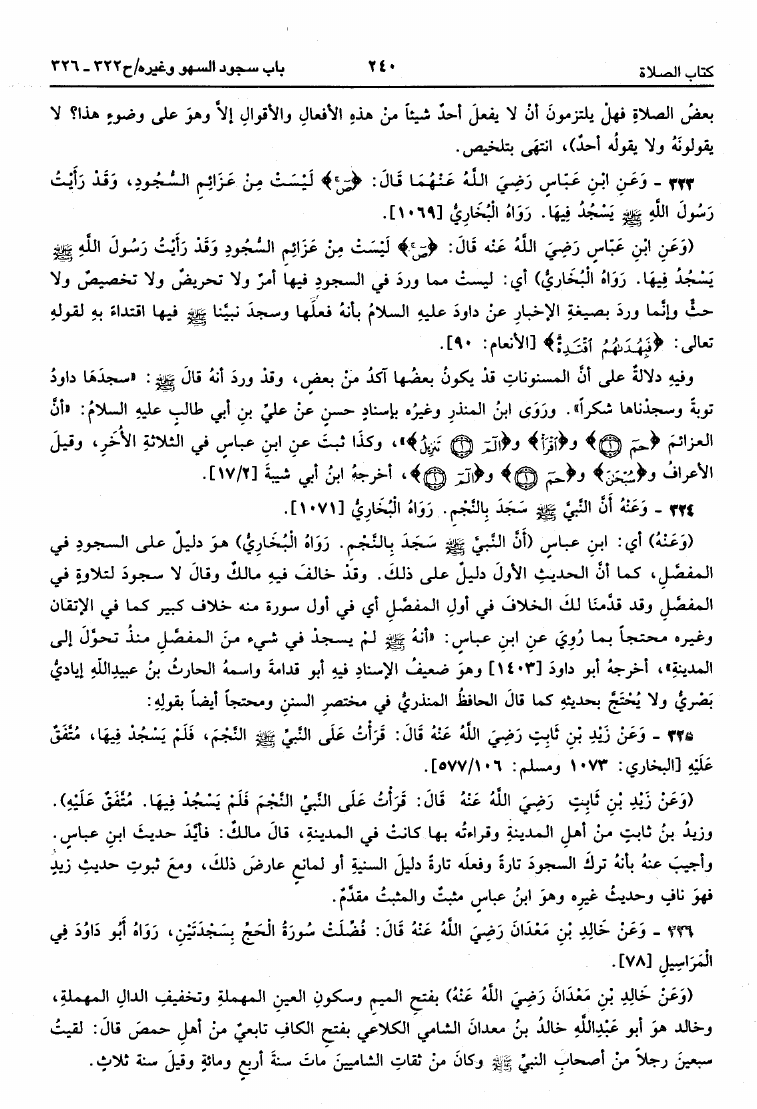 كتاب الصلاة ٢٤٠ باب سجود السهو وغيره/ح٣٢٢ـ ٣٢٦
بعضُ الصلاةِ فهلْ يلتزمونَ أنْ لا يفعلَ أحدٌ شيئاً منْ هذهِ الأفعالِ والأقوالِ إلاَّ وهوَ على وضوءٍ هذا؟ لا
يقولونَهُ ولا يقولُه أحدٌ)، انتهَى بتلخيص.
٣٢٣ - وَعَنِ ابْنِ عَبّاسٍ رَضِيَ اللَّهُ عَنْهُمَا قَالَ: ﴿صٓ﴾ لَيْسَتْ مِنْ عَزَائِمِ السُّجُودِ، وَقَدْ رَأَيْتُ
رَسُولَ اللَّهِ ﷺ يَسْجُدُ فِيهَا. رَوَاهُ الْبُخَارِيُّ [١٠٦٩].
(وَعَنِ ابْنِ عَبّاسٍ رَضِيَ اللَّهُ عَنْه قَالَ: ﴿صٓ﴾ لَيْسَتْ مِنْ عَزَائِمِ السُّجُودِ وَقَدْ رَأَيْتُ رَسُولَ اللَّهِ ﷺ
يَسْجُدُ فِيهَا. رَوَاهُ الْبُخَارِيُّ) أي: ليستْ مما وردَ في السجودِ فيها أمرٌ ولا تحريضٌ ولا تخصيصٌ ولا
حثٌّ وإنَّما وردَ بصيغةِ الإخبارِ عنْ داودَ عليهِ السلامُ بأنهُ فعلَها وسجدَ نبيُّنا ﷺ فيها اقتداءً بهِ لقولهِ
تعالى: ﴿فَبِهُدَىٰهُمُ ٱقْتَدِهْ﴾ [الأنعام: ٩٠].
وفيهِ دلالةٌ على أنَّ المسنوناتِ قدْ يكونُ بعضُها آكدُ منْ بعضٍ، وقدْ وردَ أنهُ قالَ ﷺ: «سجدَهَا داودُ
توبةً وسجدْناها شكراً». ورَوَى ابنُ المنذرِ وغيرُه بإسنادٍ حسنٍ عنْ عليِّ بنِ أبي طالبٍ عليهِ السلامُ: «أنَّ
العزائمَ ﴿حمٓ ١﴾ و﴿ٱقْرَأْ﴾ و﴿الٓمٓ ١ تَنزِيلُ﴾»، وكذا ثبتَ عنِ ابنِ عباسٍ في الثلاثةِ الأُخَرِ، وقيلَ
الأعرافُ و﴿سُبْحَٰنَ﴾ و﴿حمٓ ١﴾ و﴿الٓمٓ ١﴾، أخرجهُ ابنُ أبي شيبةَ [١٧/٢].
٣٢٤ - وَعَنْهُ أَنَّ النَّبِيَّ ﷺ سَجَدَ بِالنَّجْمِ. رَوَاهُ الْبُخَارِيُّ [١٠٧١].
(وَعَنْهُ) أي: ابنِ عباسٍ (أَنَّ النَّبِيَّ ﷺ سَجَدَ بِالنَّجْمِ. رَوَاهُ الْبُخَارِيُّ) هوَ دليلٌ على السجودِ في
المفصَّلِ، كما أنَّ الحديثَ الأولَ دليلٌ على ذلكَ. وقدْ خالفَ فيهِ مالكٌ وقالَ لا سجودَ لتلاوةٍ في
المفصَّلِ وقد قدَّمنَا لكَ الخلافَ في أولِ المفصَّلِ أي في أول سورة منه خلاف كبير كما في الإتقان
وغيره محتجاً بما رُوِيَ عنِ ابنِ عباسٍ: «أنهُ ﷺ لمْ يسجدْ في شيء منَ المفصَّلِ منذُ تحوَّلَ إلى
المدينةِ»، أخرجهُ أبو داودَ [١٤٠٣] وهوَ ضعيفُ الإسنادِ فيهِ أبو قدامةَ واسمهُ الحارثُ بنُ عبيدِاللَّهِ إياديُّ
بَصْريُّ ولا يُحْتَجُّ بحديثهِ كما قالَ الحافظُ المنذريُّ في مختصرِ السننِ ومحتجاً أيضاً بقولِهِ:
٣٢٥ - وَعَنْ زَيْدِ بْنِ ثَابِتٍ رَضِيَ اللَّهُ عَنْهُ قَالَ: قَرَأْتُ عَلَى النَّبِيِّ ﷺ النَّجْمَ، فَلَمْ يَسْجُدْ فِيهَا، مُتَّفَقٌ
عَلَيْهِ [البخاري: ١٠٧٣ ومسلم: ٥٧٧/١٠٦].
(وَعَنْ زَيْدِ بْنِ ثَابِتٍ رَضِيَ اللَّهُ عَنْهُ قَالَ: قَرَأْتُ عَلَى النَّبِيِّ النَّجْمَ فَلَمْ يَسْجُدْ فِيهَا. مُتَّفَقٌ عَلَيْهِ).
وزيدُ بنُ ثابتٍ منْ أهلِ المدينةِ وقراءتُه بها كانتْ في المدينةِ، قالَ مالكٌ: فأيَّدَ حديثَ ابنِ عباسٍ.
وأجيبَ عنهُ بأنهُ تركَ السجودَ تارةً وفعلَه تارةً دليلَ السنيةِ أو لمانعٍ عارضَ ذلكَ، ومعَ ثبوتِ حديثِ زيدٍ
فهوَ نافٍ وحديثُ غيرِه وهوَ ابنُ عباسٍ مثبتٌ والمثبتُ مقدَّمٌ.
٣٢٦ - وَعَنْ خَالِدِ بْنِ مَعْدَانَ رَضِيَ اللَّهُ عَنْهُ قَالَ: فُضِّلَتْ سُورَةُ الْحَجِّ بِسَجْدَتَيْنِ، رَوَاهُ أَبُو دَاوُدَ فِي
الْمَرَاسِيلِ [٧٨].
(وَعَنْ خَالِدِ بْنِ مَعْدَانَ رَضِيَ اللَّهُ عَنْهُ) بفتحِ الميمِ وسكونِ العينِ المهملةِ وتخفيفِ الدالِ المهملةِ،
وخالد هوَ أبو عَبْدِاللَّهِ خالدُ بنُ معدانَ الشامي الكلاعي بفتحِ الكافِ تابعيٌّ منْ أهلِ حمصَ قالَ: لقيتُ
سبعينَ رجلاً منْ أصحابِ النبيِّ ﷺ وكانَ منْ ثقاتِ الشاميينَ ماتَ سنةَ أربعٍ ومائةٍ وقيلَ سنة ثلاثٍ.